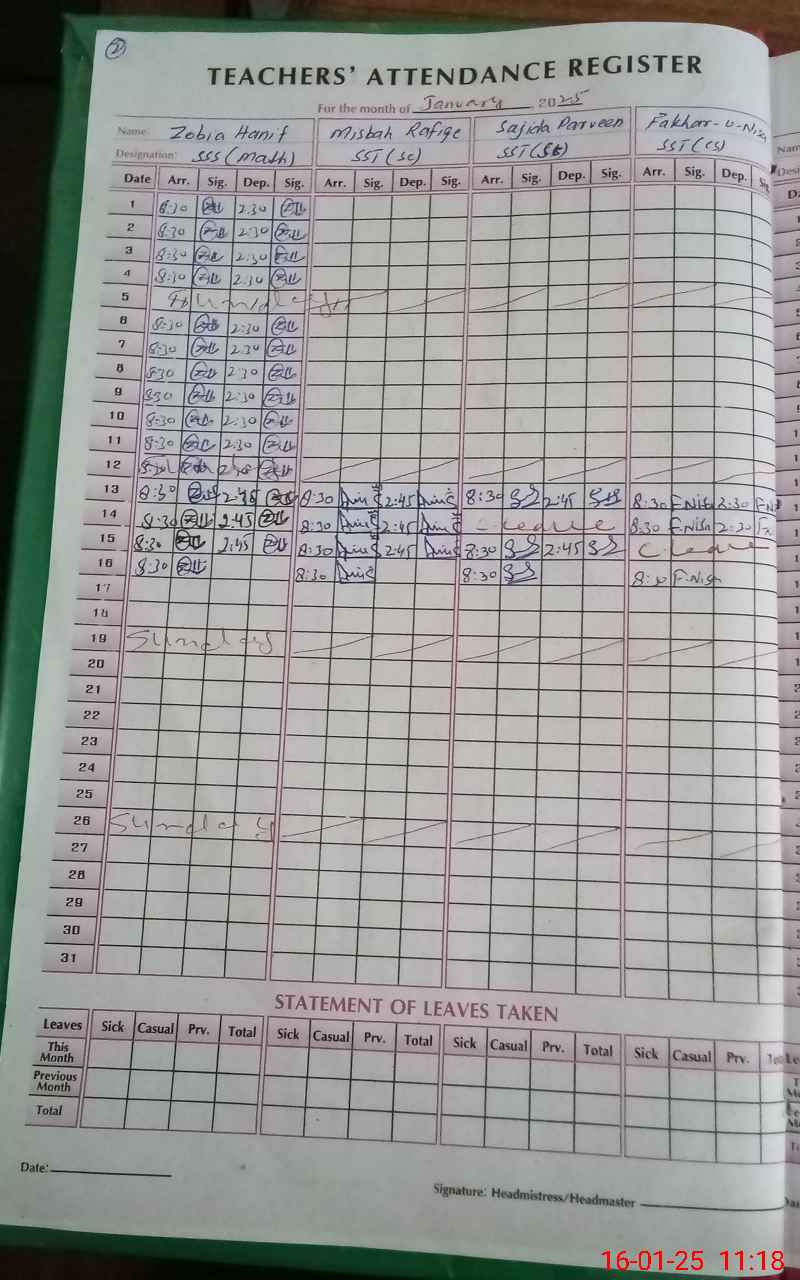 2
TEACHERS' ATTENDANCE REGISTER
For the month of January 2025
Name: Zobia Hanif Misbah Rafiqe Sajida Parveen Fakhar-u-Nisa
Designation: SSS (math) SST (SC) SST (CS)
Date Arr. Sig. Dep. Sig. Arr. Sig. Dep. Sig. Arr. Sig. Dep. Sig. Arr. Sig. Dep. Sig.
1 8:30 2:30
2 8:30 2:30
3 8:30 2:30
4 8:30 2:30
5 Sunday
6 8:30 2:30
7 8:30 2:30
8 8:30 2:30
9 8:30 2:30
10 8:30 2:30
11 8:30 2:30
12
13 8:30 2:45 8:30 2:45 8:30 2:45 8:30 F.Nisa 2:30
14 8:30 2:45 8:30 2:45 C.leave 8:30 F.Nisa 2:30
15 8:30 2:45 8:30 2:45 8:30 2:45 C.leave
16 8:30 8:30 8:30 8:30 F.Nisa
17
18
19 Sunday
20
21
22
23
24
25
26 Sunday
27
28
29
30
31
STATEMENT OF LEAVES TAKEN
Leaves Sick Casual Prv. Total Sick Casual Prv. Total Sick Casual Prv. Total Sick Casual Prv.
This Month
Previous Month
Total
Date:
Signature: Headmistress/Headmaster
16-01-25 11:18